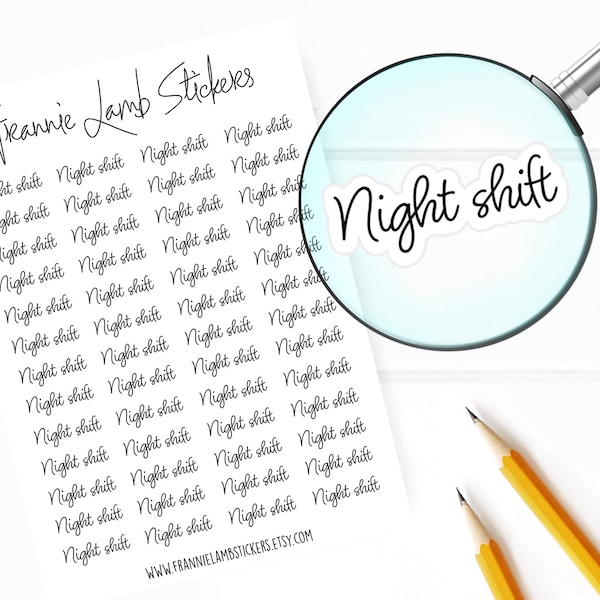 Frannie Lamb Stickers
Night shift Night shift Night shift Night shift
Night shift Night shift Night shift Night shift
Night shift Night shift Night shift Night shift
Night shift Night shift Night shift Night shift
Night shift Night shift Night shift Night shift
Night shift Night shift Night shift Night shift
Night shift Night shift Night shift Night shift
Night shift Night shift Night shift Night shift
Night shift Night shift Night shift Night shift
Night shift Night shift Night shift Night shift
Night shift Night shift Night shift Night shift
Night shift Night shift Night shift Night shift
Night shift Night shift Night shift Night shift
WWW.FRANNIELAMBSTICKERS.ETSY.COM
Night shift